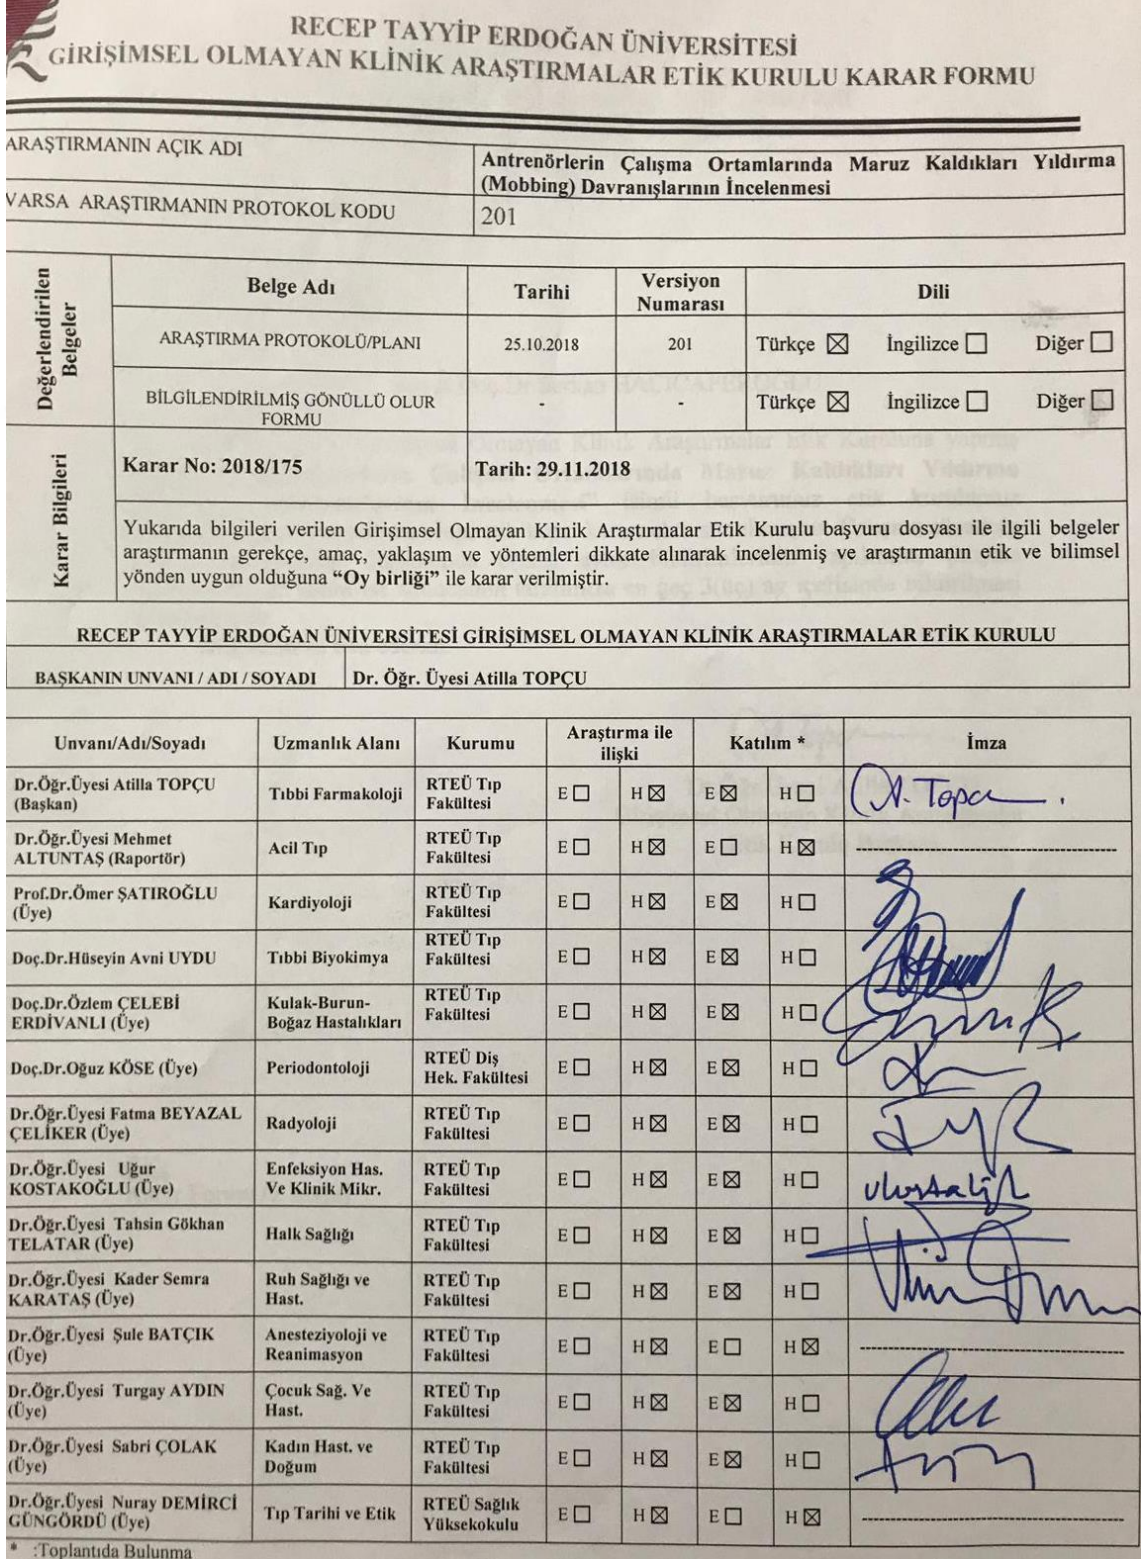 RECEP TAYYİP ERDOĞAN ÜNİVERSİTESİ
GİRİŞİMSEL OLMAYAN KLİNİK ARAŞTIRMALAR ETİK KURULU KARAR FORMU
ARAŞTIRMANIN AÇIK ADI
Antrenörlerin Çalışma Ortamlarında Maruz Kaldıkları Yıldırma
(Mobbing) Davranışlarının İncelenmesi
VARSA ARAŞTIRMANIN PROTOKOL KODU
201
Değerlendirilen
Belgeler
Belge Adı
Tarihi
Versiyon
Numarası
Dili
ARAŞTIRMA PROTOKOLÜ/PLANI
25.10.2018
201
Türkçe ☒ İngilizce ☐ Diğer ☐
BİLGİLENDİRİLMİŞ GÖNÜLLÜ OLUR
FORMU
-
-
Türkçe ☒ İngilizce ☐ Diğer ☐
Karar Bilgileri
Karar No: 2018/175
Tarih: 29.11.2018
Yukarıda bilgileri verilen Girişimsel Olmayan Klinik Araştırmalar Etik Kurulu başvuru dosyası ile ilgili belgeler
araştırmanın gerekçe, amaç, yaklaşım ve yöntemleri dikkate alınarak incelenmiş ve araştırmanın etik ve bilimsel
yönden uygun olduğuna “Oy birliği” ile karar verilmiştir.
RECEP TAYYİP ERDOĞAN ÜNİVERSİTESİ GİRİŞİMSEL OLMAYAN KLİNİK ARAŞTIRMALAR ETİK KURULU
BAŞKANIN UNVANI / ADI / SOYADI
Dr. Öğr. Üyesi Atilla TOPÇU
Unvanı/Adı/Soyadı
Uzmanlık Alanı
Kurumu
Araştırma ile
ilişki
Katılım *
İmza
Dr.Öğr.Üyesi Atilla TOPÇU
(Başkan)
Tıbbi Farmakoloji
RTEÜ Tıp
Fakültesi
E ☐ H ☒ E ☒ H ☐
A. Topcu
Dr.Öğr.Üyesi Mehmet
ALTUNTAŞ (Raportör)
Acil Tıp
RTEÜ Tıp
Fakültesi
E ☐ H ☒ E ☐ H ☒
Prof.Dr.Ömer ŞATIROĞLU
(Üye)
Kardiyoloji
RTEÜ Tıp
Fakültesi
E ☐ H ☒ E ☒ H ☐
Doç.Dr.Hüseyin Avni UYDU
Tıbbi Biyokimya
RTEÜ Tıp
Fakültesi
E ☐ H ☒ E ☒ H ☐
Doç.Dr.Özlem ÇELEBİ
ERDİVANLI (Üye)
Kulak-Burun-
Boğaz Hastalıkları
RTEÜ Tıp
Fakültesi
E ☐ H ☒ E ☒ H ☐
Doç.Dr.Oğuz KÖSE (Üye)
Periodontoloji
RTEÜ Diş
Hek. Fakültesi
E ☐ H ☒ E ☒ H ☐
Dr.Öğr.Üyesi Fatma BEYAZAL
ÇELİKER (Üye)
Radyoloji
RTEÜ Tıp
Fakültesi
E ☐ H ☒ E ☒ H ☐
Dr.Öğr.Üyesi Uğur
KOSTAKOĞLU (Üye)
Enfeksiyon Has.
Ve Klinik Mikr.
RTEÜ Tıp
Fakültesi
E ☐ H ☒ E ☒ H ☐
Dr.Öğr.Üyesi Tahsin Gökhan
TELATAR (Üye)
Halk Sağlığı
RTEÜ Tıp
Fakültesi
E ☐ H ☒ E ☒ H ☐
Dr.Öğr.Üyesi Kader Semra
KARATAŞ (Üye)
Ruh Sağlığı ve
Hast.
RTEÜ Tıp
Fakültesi
E ☐ H ☒ E ☒ H ☐
Dr.Öğr.Üyesi Şule BATÇIK
(Üye)
Anesteziyoloji ve
Reanimasyon
RTEÜ Tıp
Fakültesi
E ☐ H ☒ E ☐ H ☒
Dr.Öğr.Üyesi Turgay AYDIN
(Üye)
Çocuk Sağ. Ve
Hast.
RTEÜ Tıp
Fakültesi
E ☐ H ☒ E ☒ H ☐
Dr.Öğr.Üyesi Sabri ÇOLAK
(Üye)
Kadın Hast. ve
Doğum
RTEÜ Tıp
Fakültesi
E ☐ H ☒ E ☒ H ☐
Dr.Öğr.Üyesi Nuray DEMİRCİ
GÜNGÖRDÜ (Üye)
Tıp Tarihi ve Etik
RTEÜ Sağlık
Yüksekokulu
E ☐ H ☒ E ☐ H ☒
* :Toplantıda Bulunma